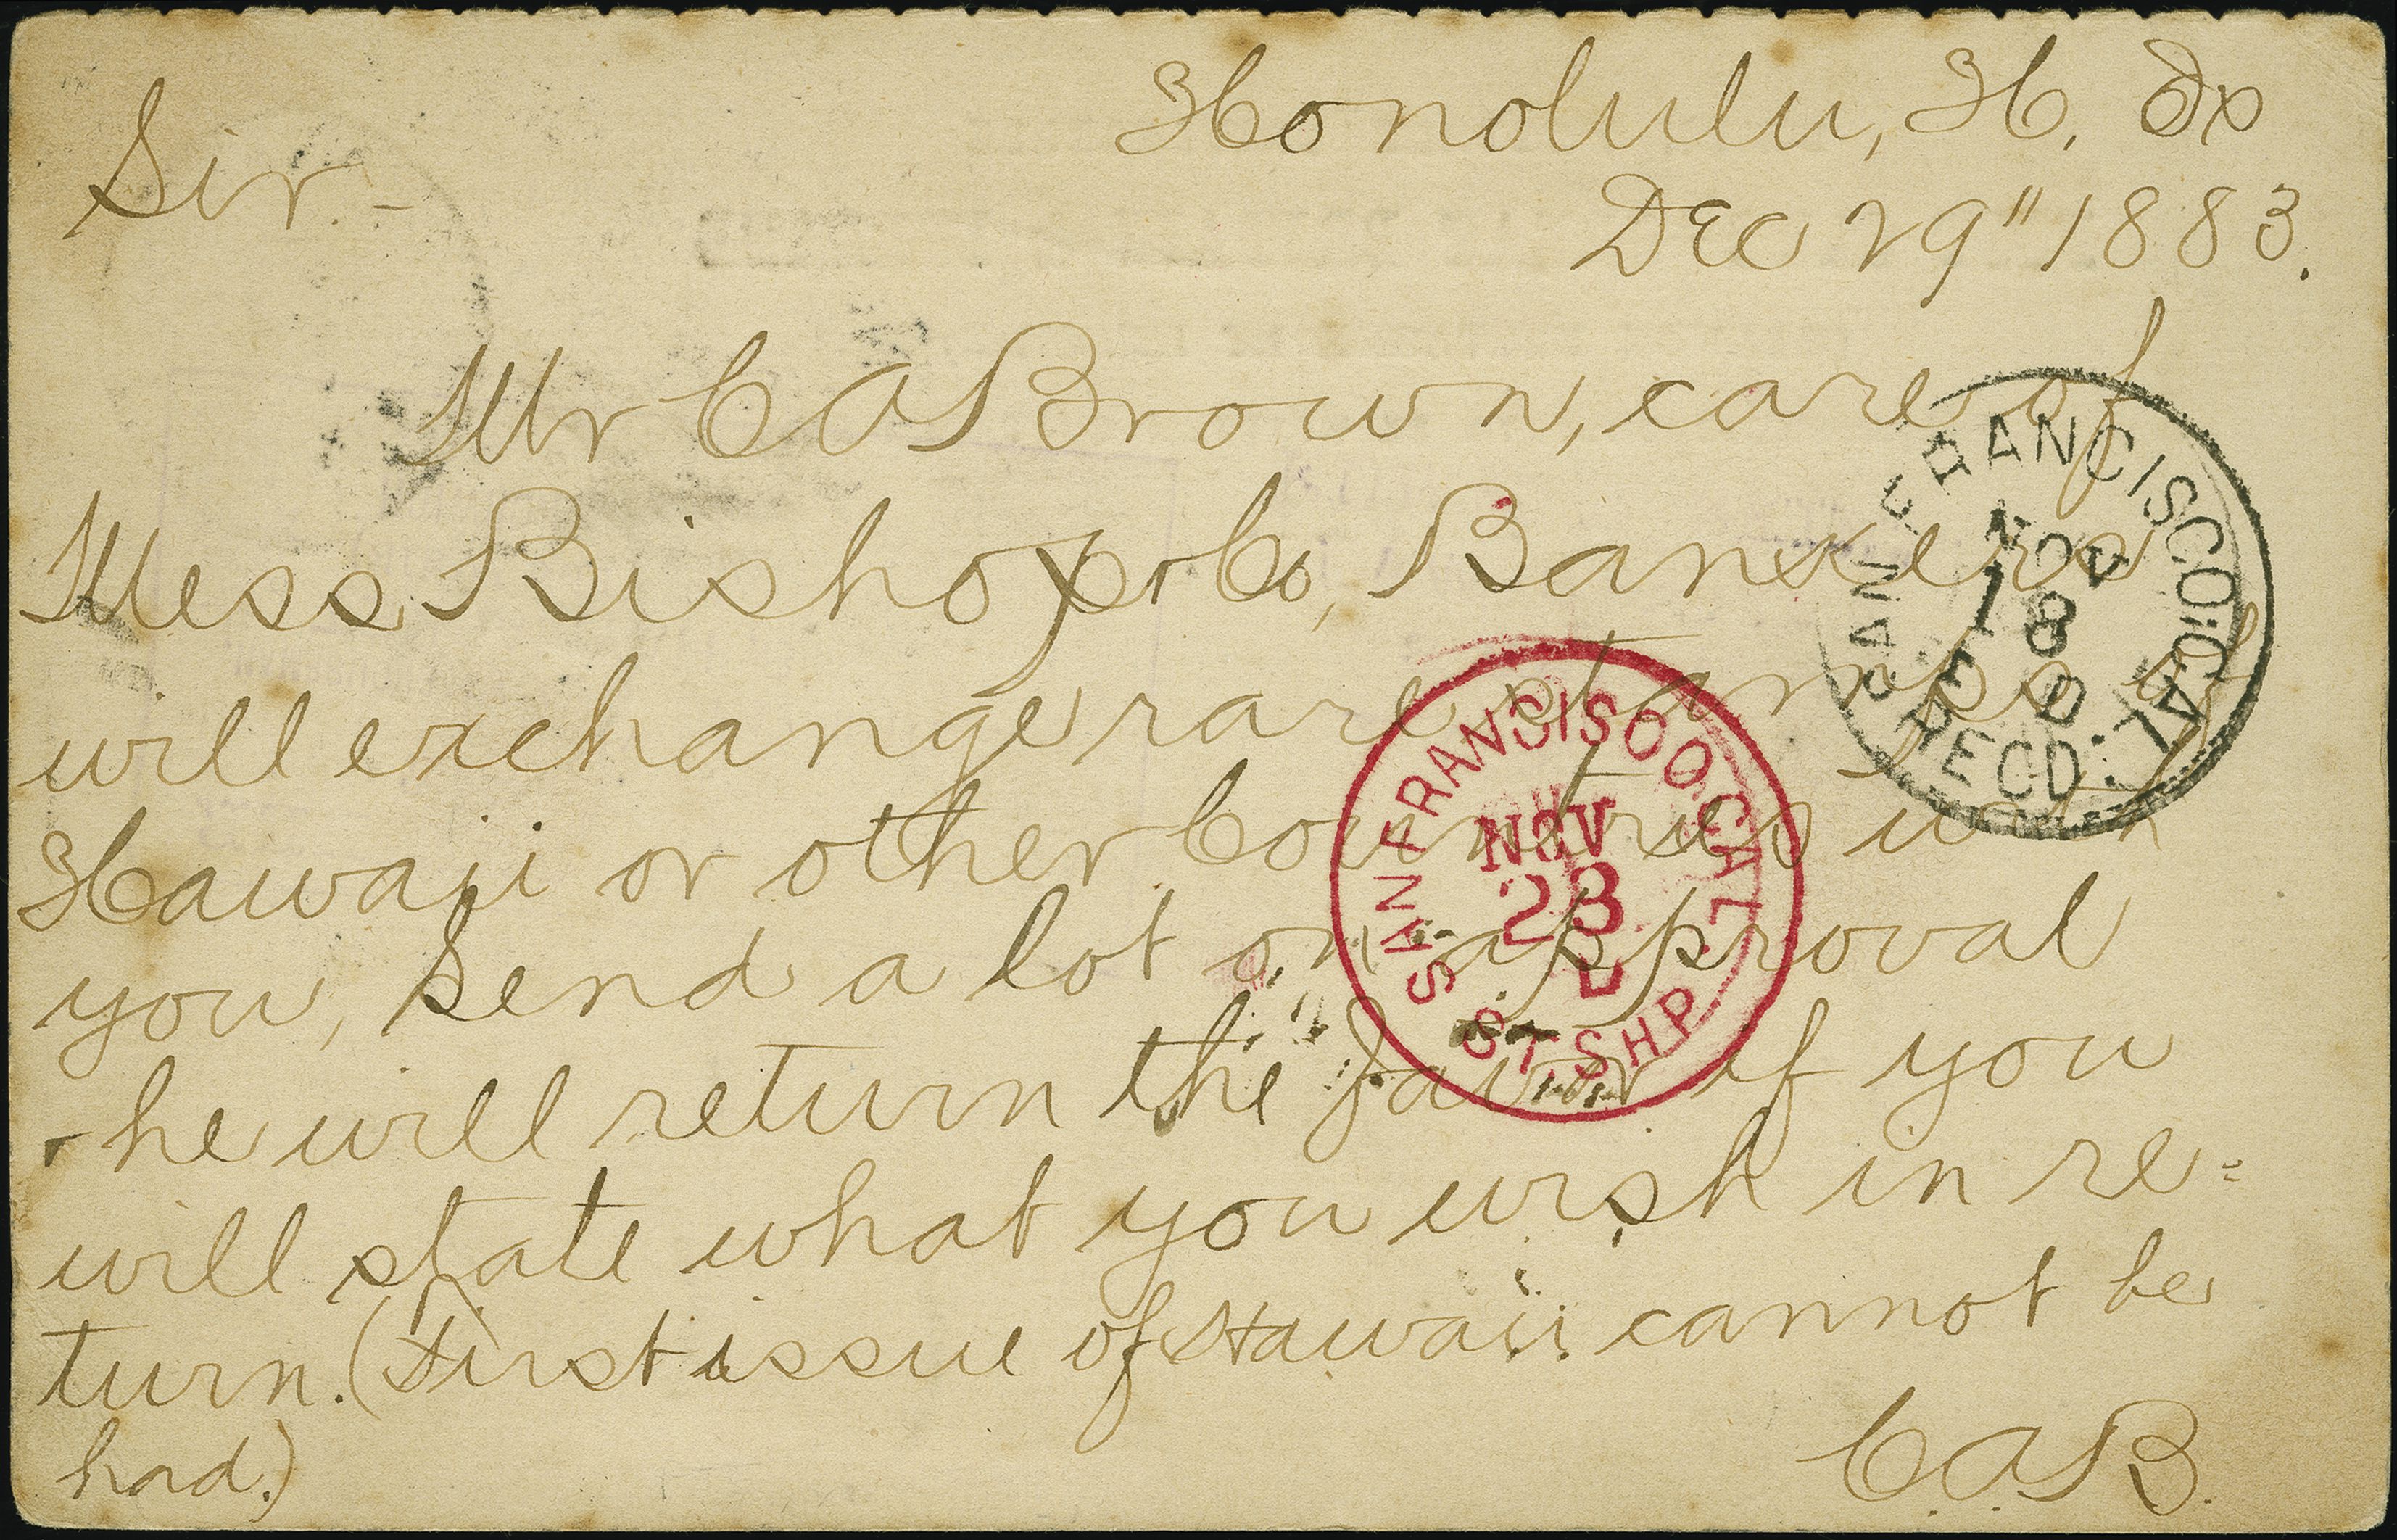 Honolulu, H. Is
Sir. -
Dec 29" 1883.
Mr C A Brown, care of
Mess Bishop & Co, Bankers
will exchange rare stamps of
Hawaii or other Countries with
you, Send a lot on approval
he will return the favor if you
will state what you wish in re=
turn. (First issue of Hawaii cannot be
had.)
C.A.B.
SAN FRANCISCO, CAL.
NOV
18
RECD.
SAN FRANCISCO CAL.
NOV
23
D
ST. SHP